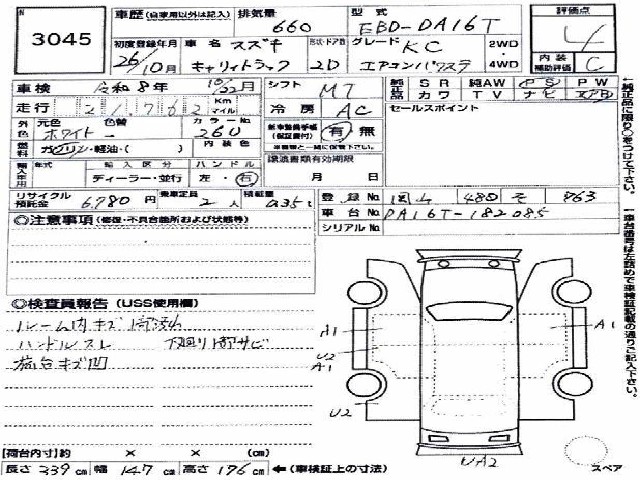 3045
車歴 (自家用以外は記入) 排気量 660 型式 EBD-DA16T 評価点 4
初度登録年月 26年10月 車名 スズキ キャリィトラック 形状・ドア数 2D グレード KC エアコンパワステ 2WD 4WD 内装補助評価 C
車検 令和8年 月 シフト MT 純正品 SR 純AW PS PW
カワ TV ナビ エアB
走行 Km マイル 冷房 AC セールスポイント
外 元色 ホワイト 色替 カラーNo. 26U 内装色 新車整備手帳(保証書付) 有 無
燃料 ガソリン・軽油・( ) ※車書と一緒に保管下さい。
輸入車用 年式 輸入区分 ディーラー・並行 ハンドル 左・右 譲渡書類有効期限 月 日
リサイクル預託金 6,780円 乗車定員 2人 積載量 0.35t
登録No. 岡山 480 そ 863
車台No. DA16T-182085
シリアルNo.
◎注意事項 (修復・不具合箇所および状態等)
◎検査員報告 (USS使用欄)
ルーム内キズ 一部汚れ
ハンドルスレ 下廻り一部サビ
荷台キズ凹
A1
U2
A1
U2
A1
UA2
スペア
[荷台内寸]約 × × (cm)
長さ 339cm 幅 147cm 高さ 176cm ←(車検証上の寸法)
↑純正品に限り○をつけて下さい。
↑車台番号は左詰めで車検証記載の通りご記入下さい。